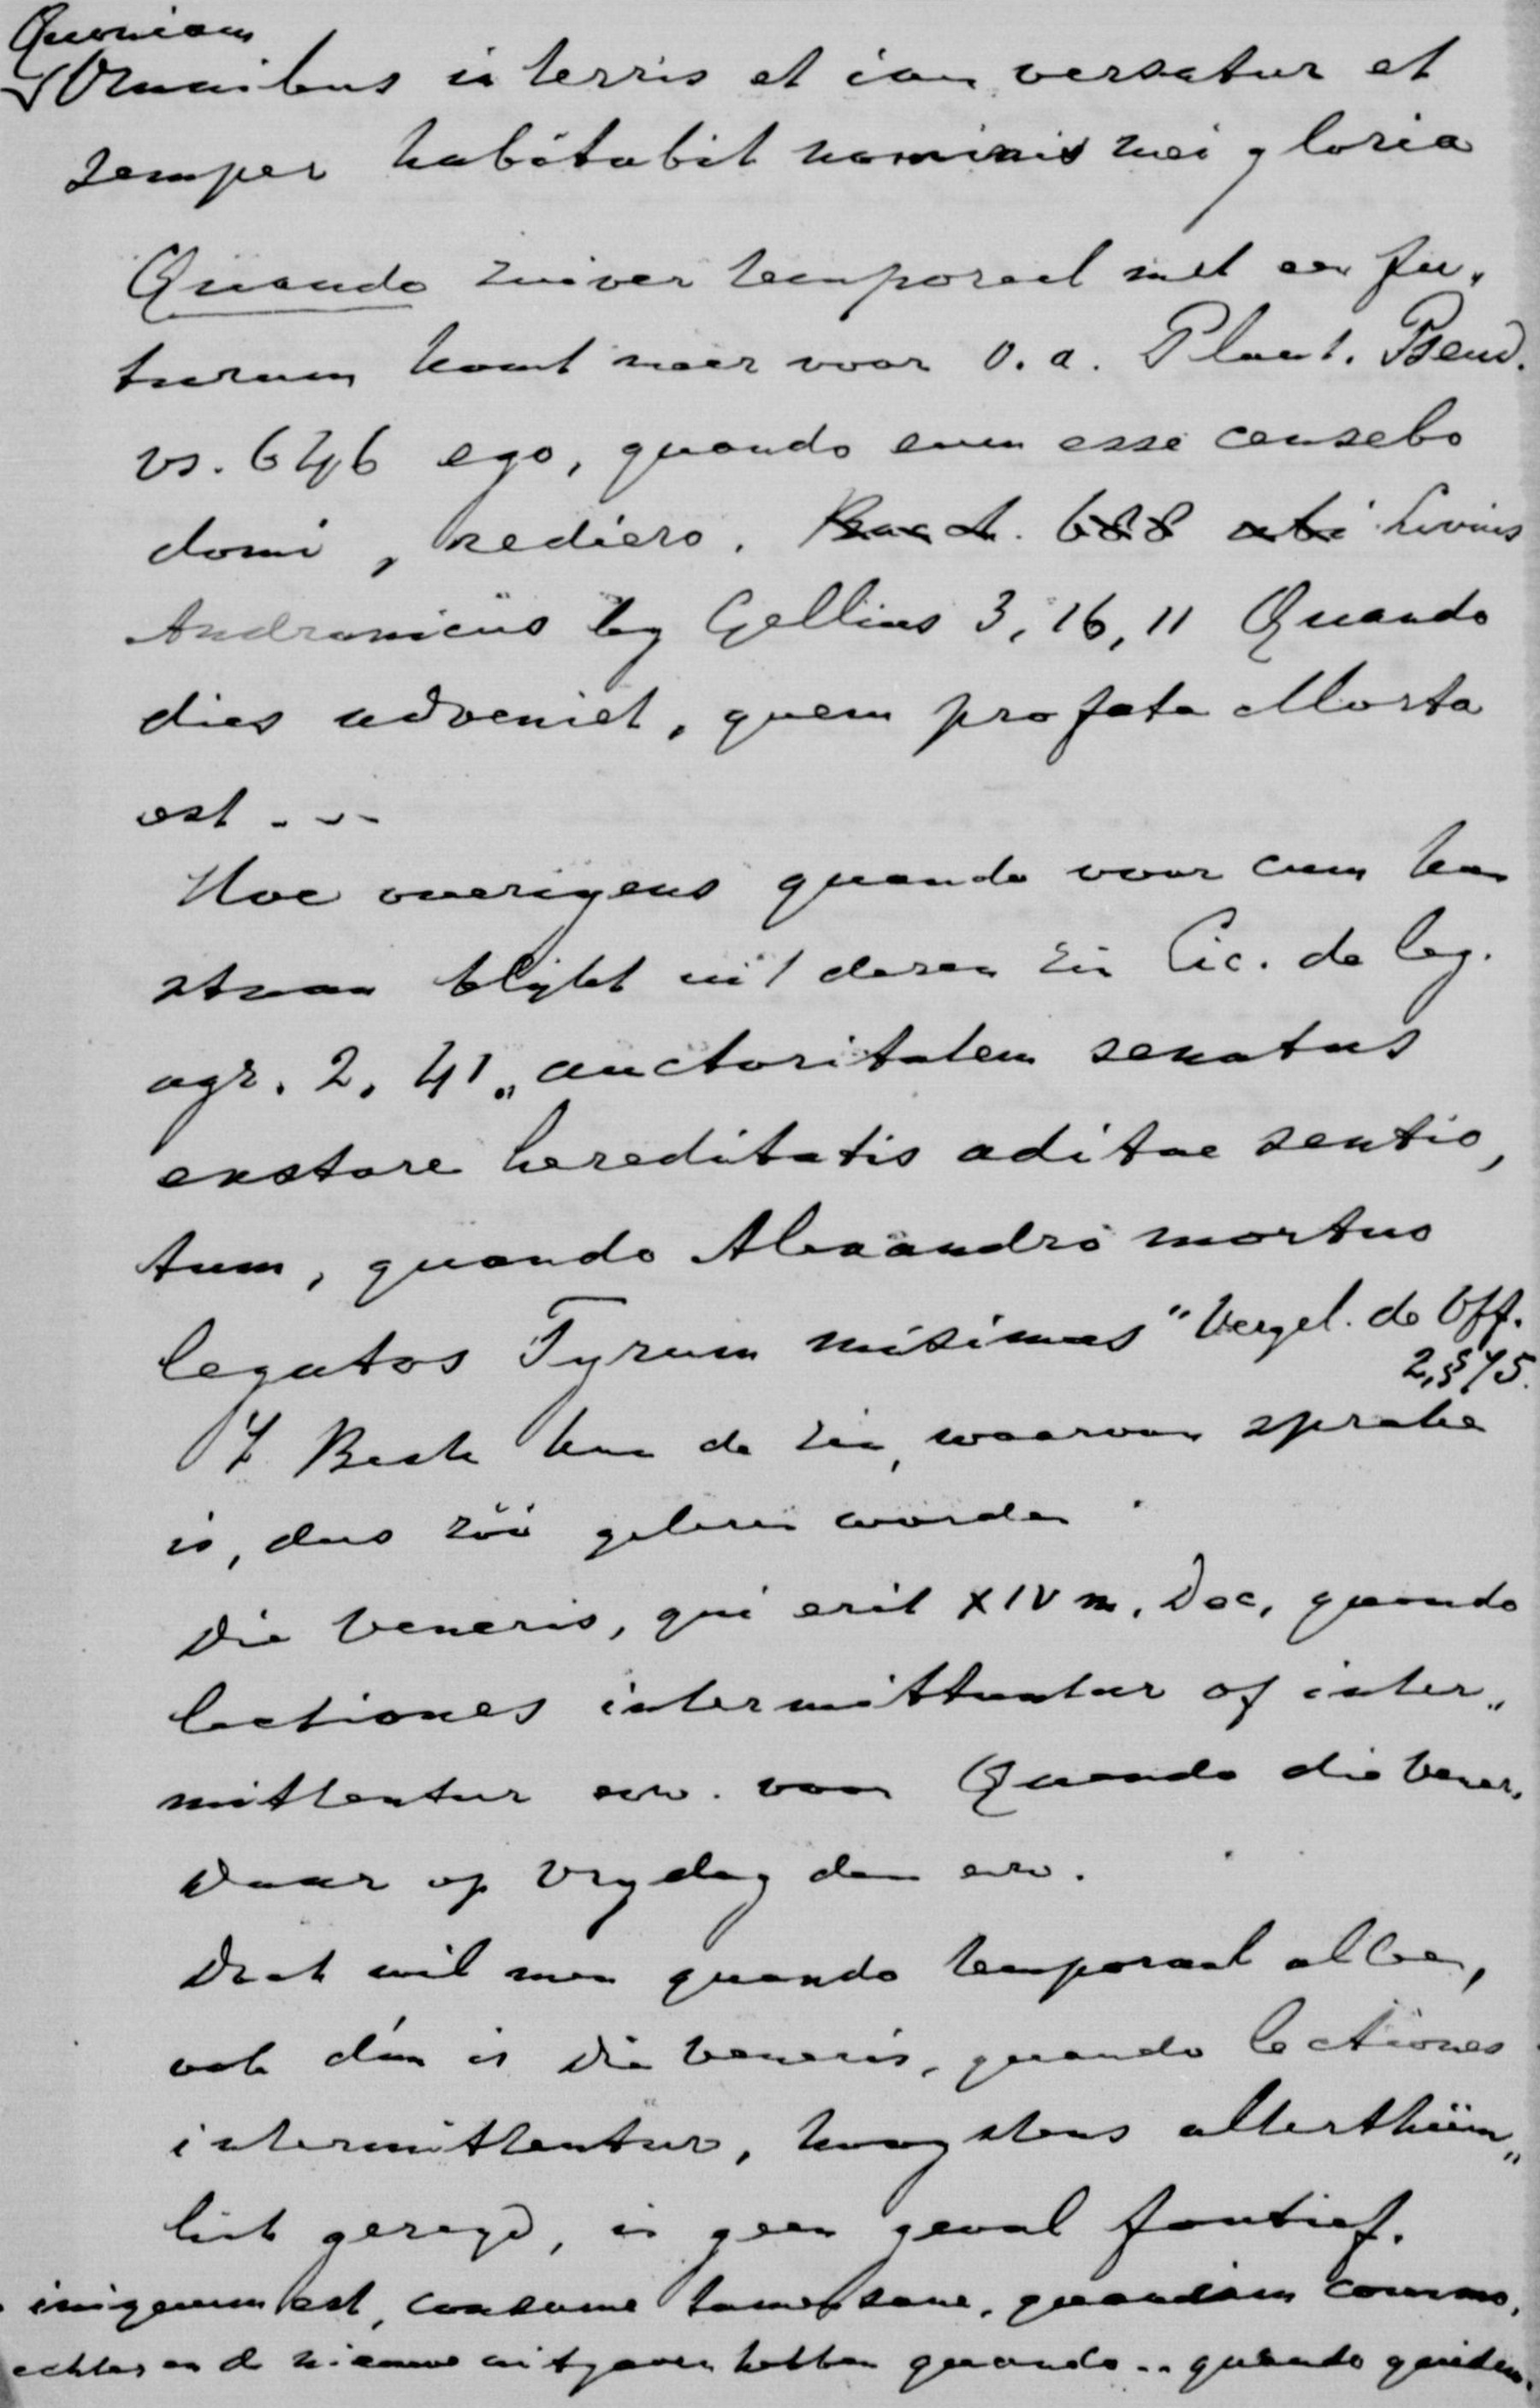 Quoniam
Omnibus in terris et iam versatur et
semper habitabit nominis mei gloria
Quando zuiver temporeel met een fu„
turum komt meer voor o.a. Plaut. Pseud.
vs. 646 ego, quando eum esse censebo
domi, rediero. Bacch. 688 ubi Livius
Andronicus by Gellius 3, 16, 11 Quando
dies adveniet, quem profata Morta
est ...
Hoe overigens quando voor cum kan
staan blijkt uit dezen zin Cic. de leg.
agr. 2, 41 „auctoritatem senatus
exstare hereditatis aditae sentio,
tum, quando Alexandro mortuo
legatos Tyrum misimus" Vergel. de Off.
2, § 75.
't Beste kan de zin, waarvan sprake
is, dus zóó gelezen worden
Die Veneris, qui erit XIV m. Dec, quando
lectiones intermittuntur of inter„
mittentur enz. voor Quando die Vener.
Daar op Vrydag den enz.
Doch wil men quando temporaal alleen,
ook dán is Die Veneris, quando lectiones
intermittentur, hoogstens alterthüm„
lich gezegd, in geen geval foutief.
iniquum est, consume tamen sane, quoniam commo,
echter en de nieuwe uitgaven hebben quando .. quando quidem.